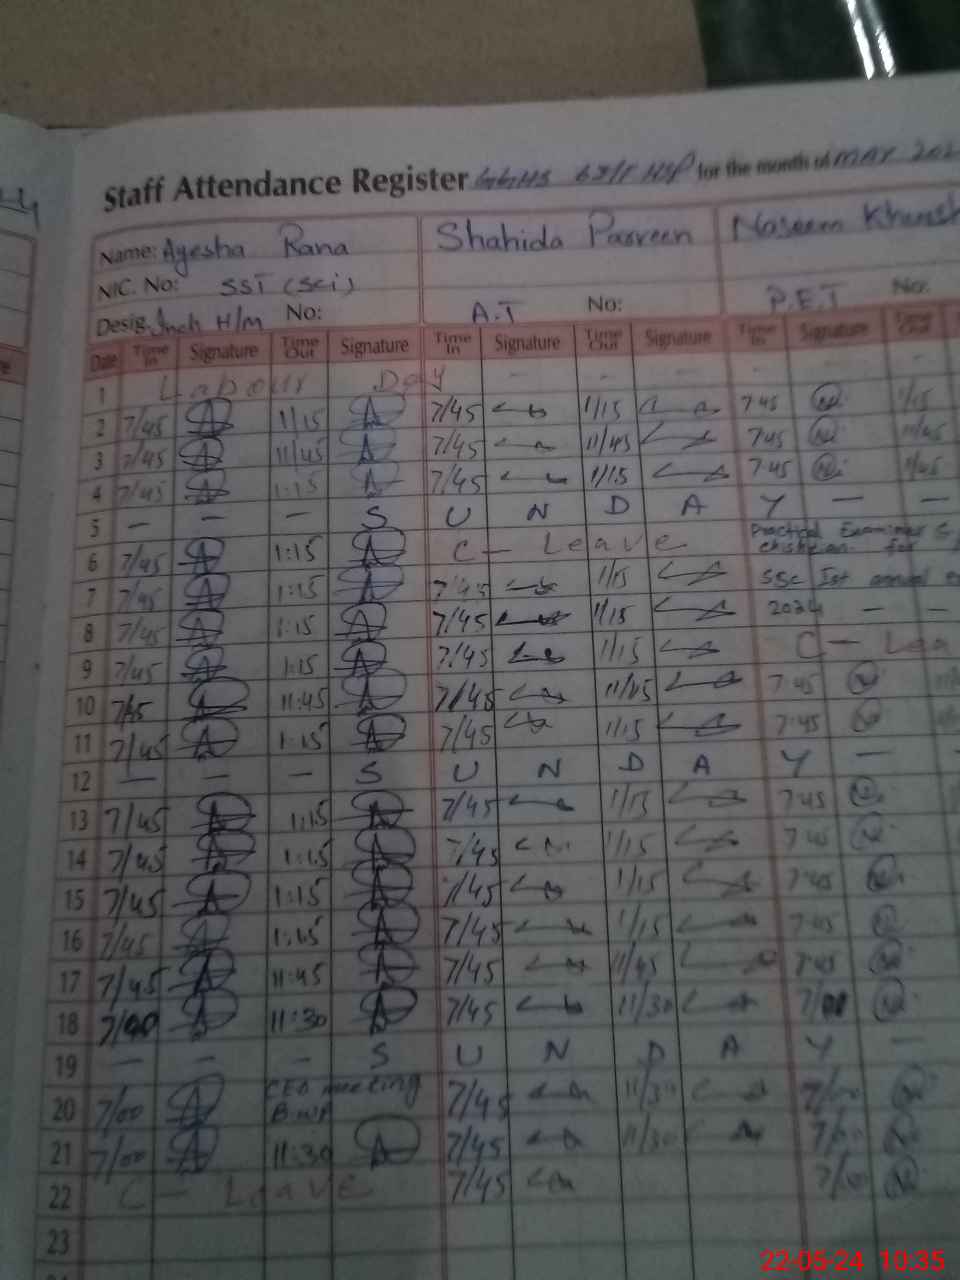 Staff Attendance Register GGHS 63/F HSP for the month of MAY
Name: Ayesha Rana Shahida Parveen Naseem
NIC. No: SST (Sci)
Desig. Inch H/M No: A.T No: P.E.T No:
Date Time In Signature Time Out Signature Time In Signature Time Out Signature Time In Signature Time Out
1 Labour Day - - - - - -
2 7/45 1/15 7/45 1/15 7 45 1/15
3 7/45 11/45 7/45 11/45 7 45 11/45
4 7/45 1:15 7/45 1/15 7.45
5 - - - S U N D A Y - -
6 7/45 1:15 C - Leave Practical Examiner
7 7/45 1:15 7:45 1/15 SSC Ist annual
8 7/45 1:15 7/45 1/15 2024 - -
9 7/45 1:15 7/45 1/15 C -
10 7/45 11:45 7/45 11/45 7:45
11 7/45 1:15 7/45 1/15 7:45
12 - - - S U N D A Y -
13 7/45 1:15 7/45 1/15 7:45
14 7/45 1:15 7/45 1/15 7:45
15 7/45 1:15 7/45 1/15 7:45
16 7/45 1:15 7/45 1/15 7:45
17 7/45 11:45 7/45 11/45 7:45
18 7/00 11:30 7/45 11/30 7/00
19 - - - S U N D A Y -
20 7/00 CEO meeting BWP 7/45 11/30 7/00
21 7/00 11:30 7/45 11/30 7/00
22 C - Leave 7/45 7/00
23
22-05-24 10:35